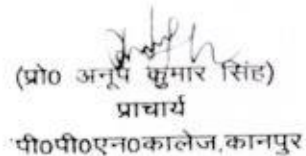 (प्रो0 अनूप कुमार सिंह)
प्राचार्य
पी0पी0एन0कालेज,कानपुर